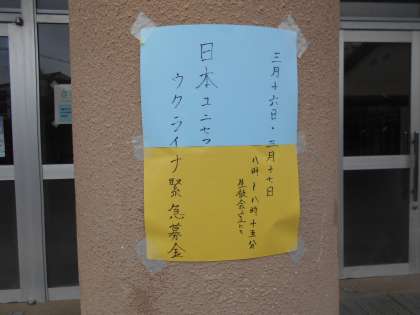 三月十六日・三月十七日
八時～八時十五分
日本ユニセフ
ウクライナ緊急募金